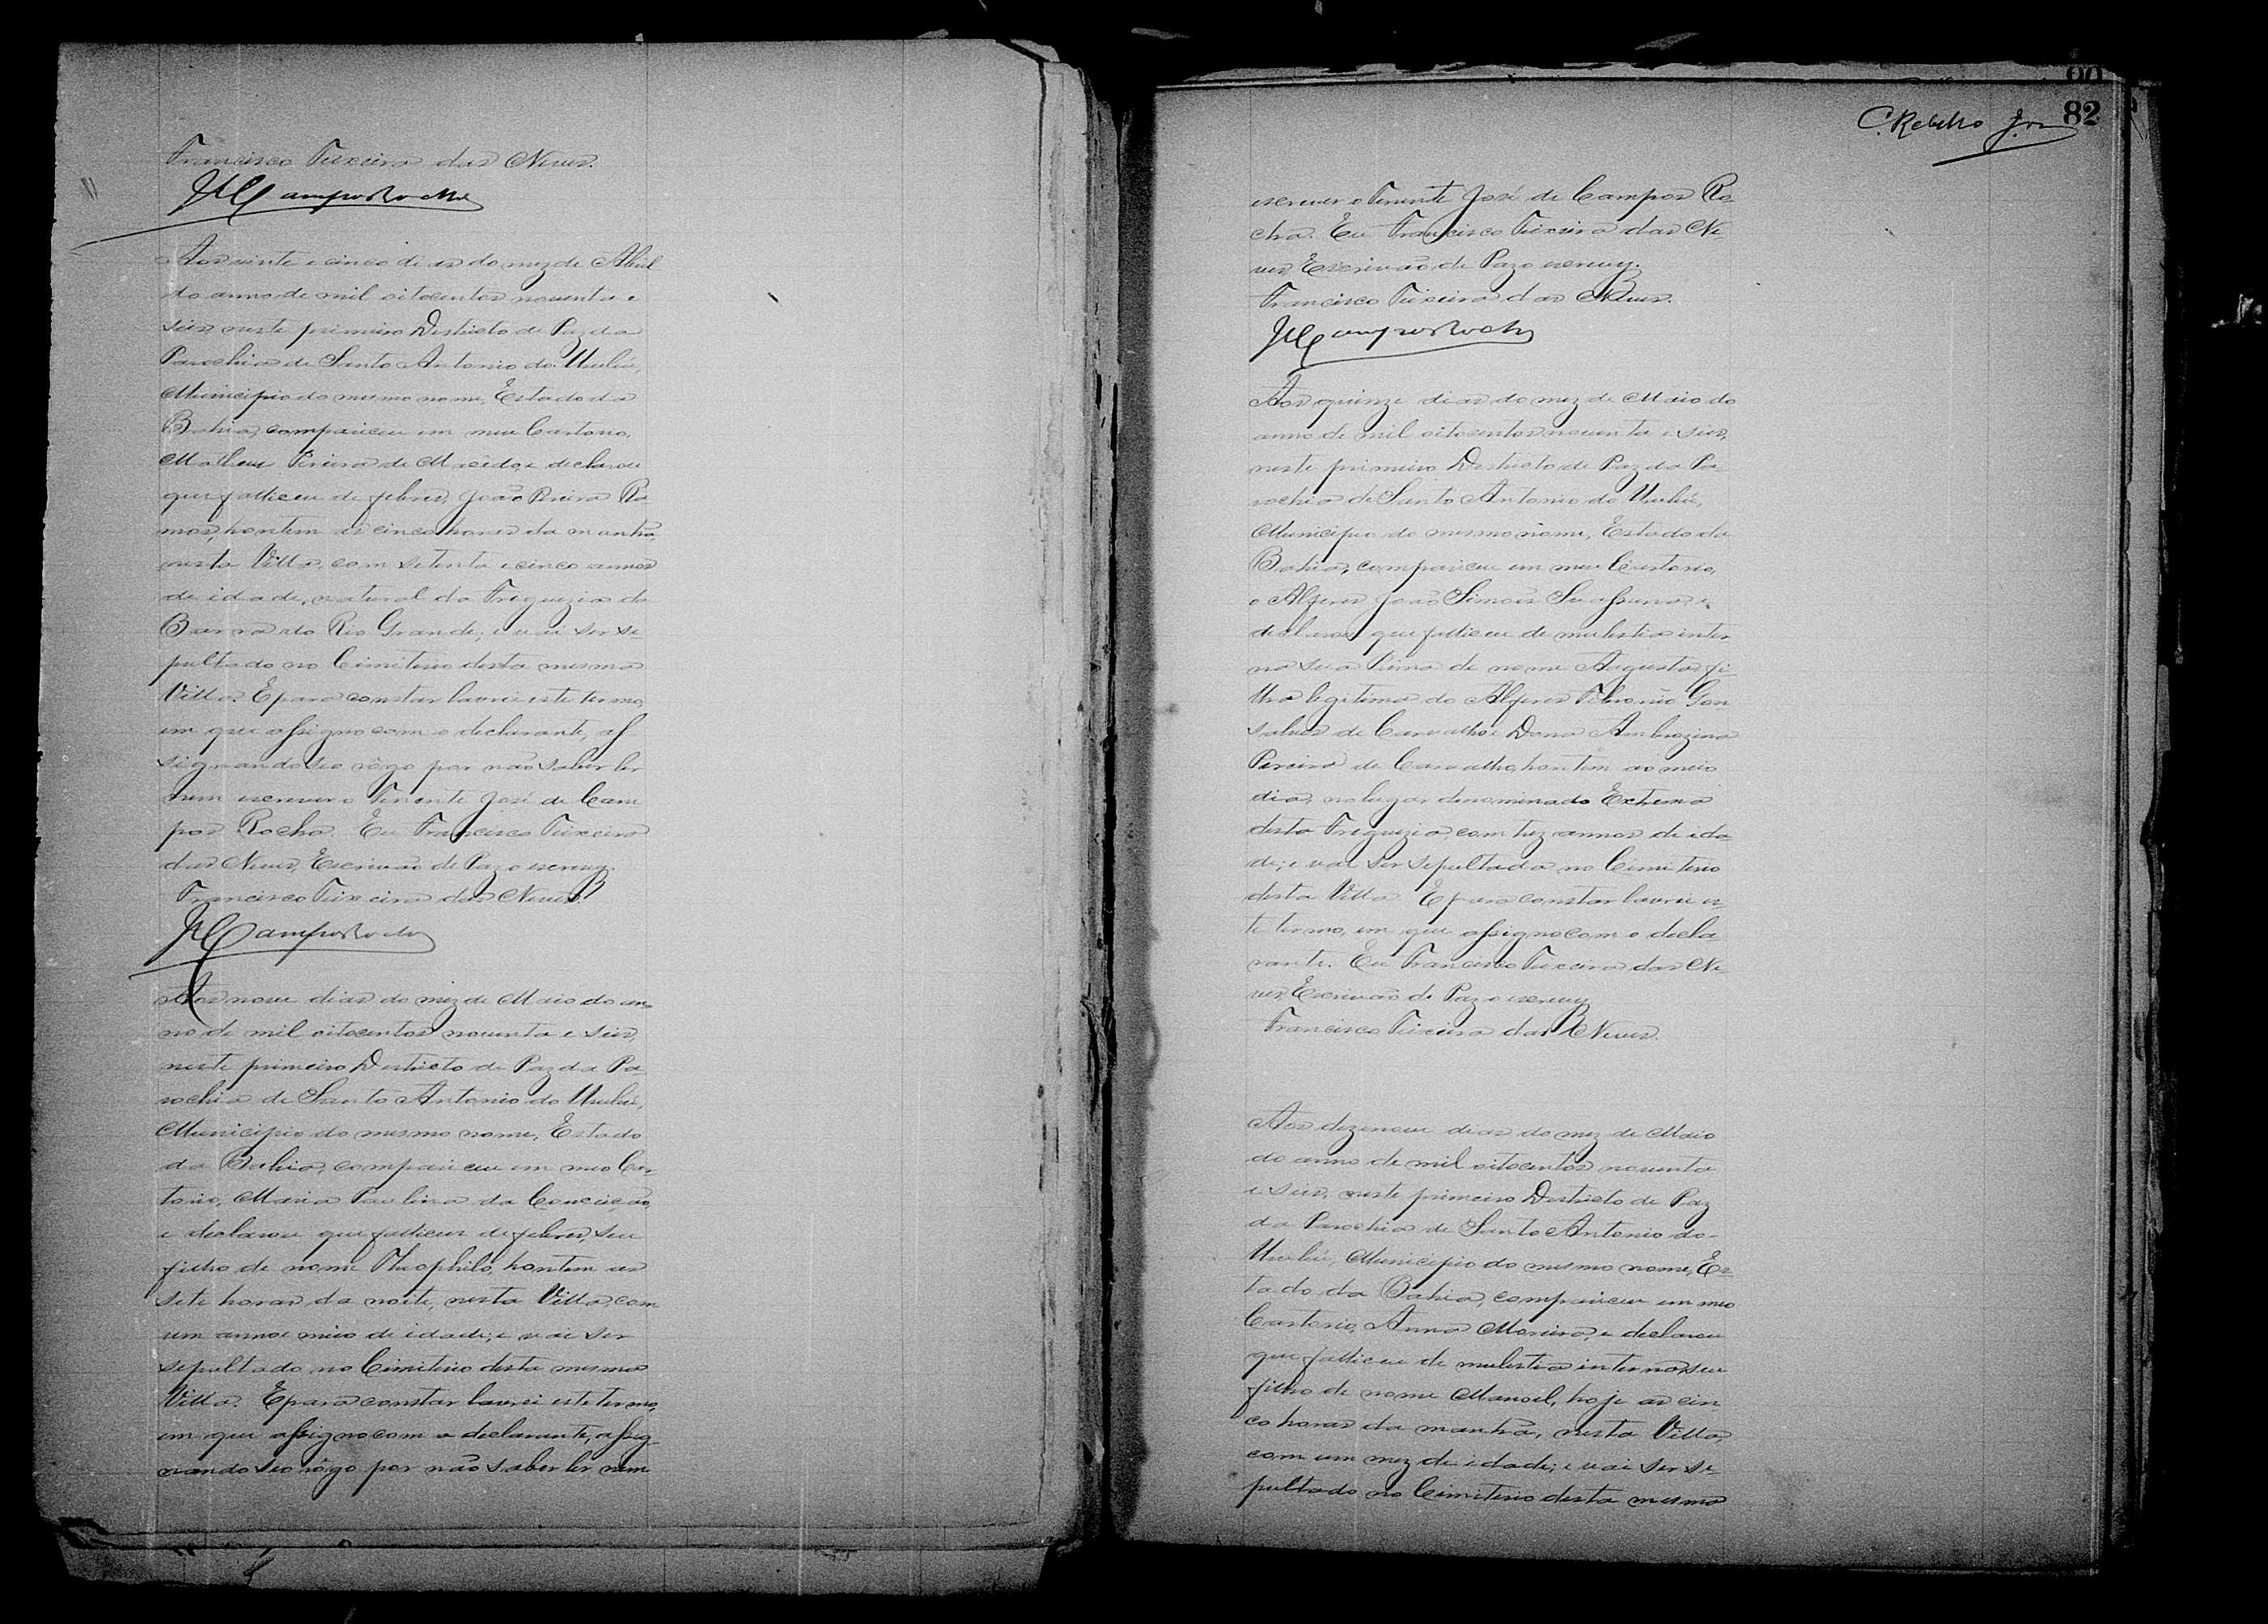 Francisco Teixeira das Neves.
JCamposRocha
Aos vinte e cinco dias do mez de Abril
do anno de mil oitocentos noventa e
seis, neste primeiro Districto de Paz da
Parochia de Santo Antonio do Urubú,
Municipio do mesmo nome, Estado da
Bahia, compareceu em meu Cartorio,
Matheus Pereira de Macêdo, e declarou
que falleceu de febres, João Pereira Ra-
mos, hontem as cinco horas da manhã,
nesta Villa, com setenta e cinco annos
de idade, natural da Freguezia da
Barra do Rio Grande; e vai ser se-
pultado no Cimiterio desta mesma
Villa. E para constar lavrei este termo,
em que assigno com o declarante, as-
signando seo rôgo por não saber ler
nem escrever o Tenente José de Cam-
pos Rocha. Eu Francisco Teixeira
das Neves, Escrivão de Paz o escrevy.
Francisco Teixeira das Neves.
JCamposRocha
Aos nove dias do mez de Maio do an-
no de mil oitocentos noventa e seis,
neste primeiro Districto de Paz da Pa-
rochia de Santo Antonio do Urubú,
Municipio do mesmo nome, Estado
da Bahia, compareceu em meo Car-
torio, Maria Paulina da Conceição,
e declarou que falleceu de febres, seu
filho de nome Theophilo, hontem as
sete horas da noite, nesta Villa, com
um anno e meio de idade; e vai ser
sepultado no Cimiterio desta mesma
Villa. E para constar lavrei este termo,
em que assigno com a declarante, assig-
nando seo rôgo por não saber ler nem
82
C. Rebello J.or
escrever o Tenente José de Campos Ro-
cha. Eu Francisco Teixeira das Ne-
ves, Escrivão de Paz o escrevy.
Francisco Teixeira das Neves.
JCamposRocha
Aos quinze dias do mez de Maio do
anno de mil oitocentos noventa e seis,
neste primeiro Districto de Paz da Pa-
rochia de Santo Antonio do Urubú,
Municipio do mesmo nome, Estado da
Bahia, compareceu em meu Cartorio,
o Alferes João Simões Suassuna, e
declarou que falleceu de mulestia inter-
na sua Prima de nome Augusta, fi-
lha legitima do Alferes Gon-
salves de Carvalho e Dona Ambrozina
Pereira de Carvalho, hontem ao meio
dia, no lugar denominado Extrema
desta Freguezia, com trez annos de ida-
de; e vai ser sepultada no Cimiterio
desta Villa. E para constar lavrei es-
te termo, em que assigno com o decla-
rante. Eu Francisco Teixeira das Ne-
ves, Escrivão de Paz o escrevy
Francisco Teixeira das Neves.
Aos dezenove dias do mez de Maio
do anno de mil oitocentos noventa
e seis, neste primeiro Districto de Paz
da Parochia de Santo Antonio do
Urubú, Municipio do mesmo nome, Es-
tado da Bahia, compareceu em meo
Cartorio, Anna Moreira, e declarou
que falleceu de mulestia interna, seu
filho de nome Manoel, hoje as cin-
co horas da manhã, nesta Villa,
com um mez de idade; e vai ser se-
pultado no Cimiterio desta mesma